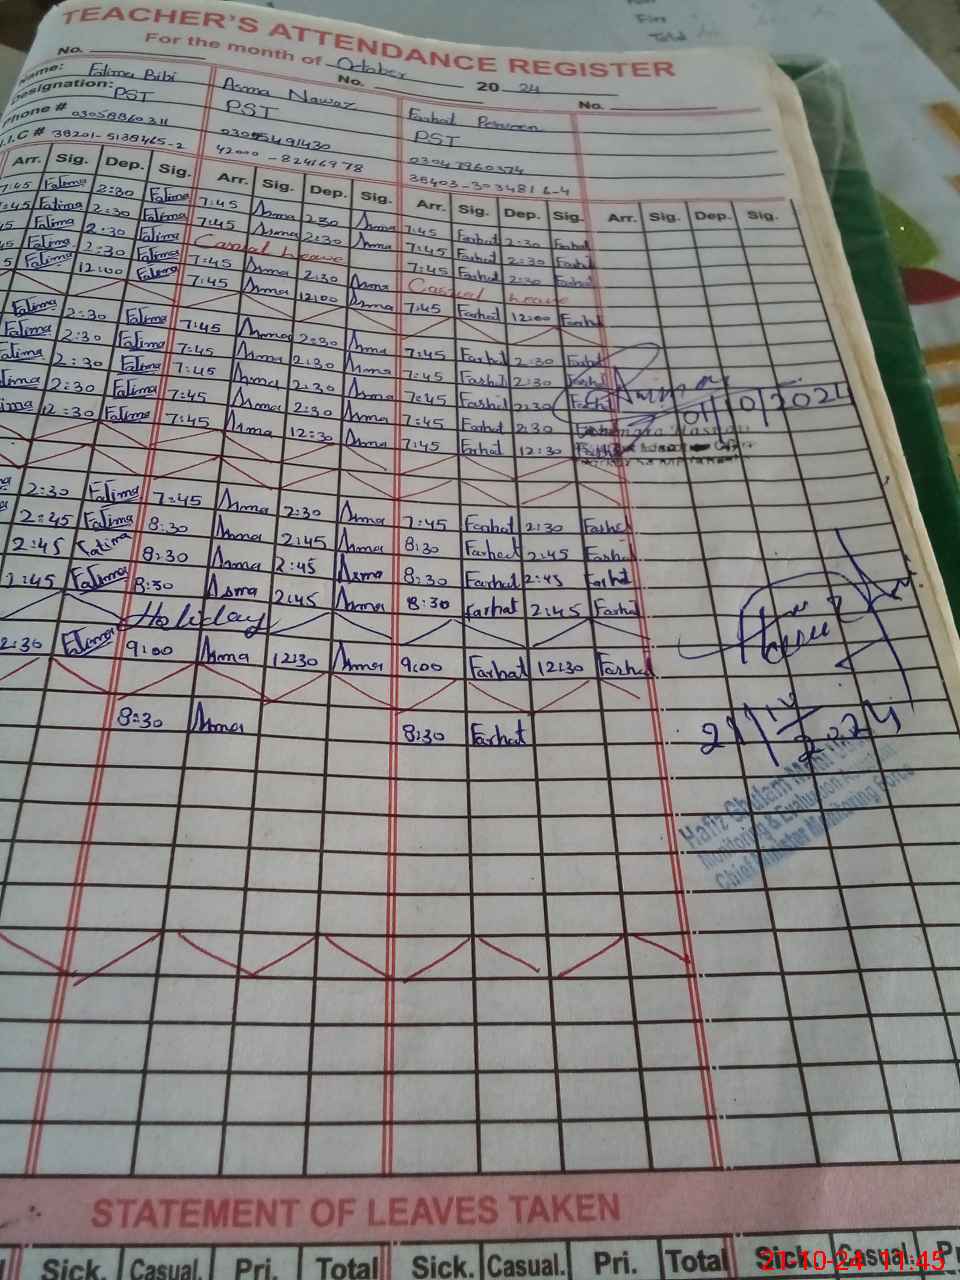 TEACHER'S ATTENDANCE REGISTER
For the month of October 2024
No. No. No.
Name: Fatima Bibi Asma Nawaz Farhat Perveen
Designation: PST PST PST
Phone # 03058860311 03095491430 03047960374
I.C # 38201-5138465-2 42000-82416978 38403-3034816-4
Arr. Sig. Dep. Sig. Arr. Sig. Dep. Sig. Arr. Sig. Dep. Sig. Arr. Sig. Dep. Sig.
7:45 Fatima 2:30 Fatima 7:45 Asma 2:30 Asma 7:45 Farhat 2:30 Farhat
7:45 Fatima 2:30 Fatima 7:45 Asma 2:30 Asma 7:45 Farhat 2:30 Farhat
45 Fatima 2:30 Fatima Casual Leave 7:45 Farhat 2:30 Farhat
45 Fatima 2:30 Fatima 7:45 Asma 2:30 Asma Casual Leave
5 Fatima 12:00 Fatima 7:45 Asma 12:00 Asma 7:45 Farhat 12:00 Farhat
Fatima 2:30 Fatima 7:45 Asma 2:30 Asma 7:45 Farhat 2:30 Farhat
Fatima 2:30 Fatima 7:45 Asma 2:30 Asma 7:45 Farhat 2:30 Farhat
Fatima 2:30 Fatima 7:45 Asma 2:30 Asma 7:45 Farhat 2:30 Farhat
tima 2:30 Fatima 7:45 Asma 2:30 Asma 7:45 Farhat 2:30
01/10/2024
ima 12:30 Fatima 7:45 Asma 12:30 Asma 7:45 Farhat 12:30 Farhat
2:30 Fatima 7:45 Asma 2:30 Asma 7:45 Farhat 2:30 Farhat
2:45 Fatima 8:30 Asma 2:45 Asma 8:30 Farhat 2:45 Farhat
2:45 Fatima 8:30 Asma 2:45 Asma 8:30 Farhat 2:45 Farhat
1:45 Fatima 8:30 Asma 2:45 Asma 8:30 Farhat 2:45 Farhat
Holiday
2:30 Fatima 9:00 Asma 12:30 Asma 9:00 Farhat 12:30 Farhat
8:30 Asma 8:30 Farhat
Hafiz Ghulam
Monitoring & Evaluation
Chief Minister Monitoring Force
STATEMENT OF LEAVES TAKEN
Sick. Casual. Pri. Total Sick. Casual. Pri. Total Sick. Casual. Pr
21-10-24 11:45